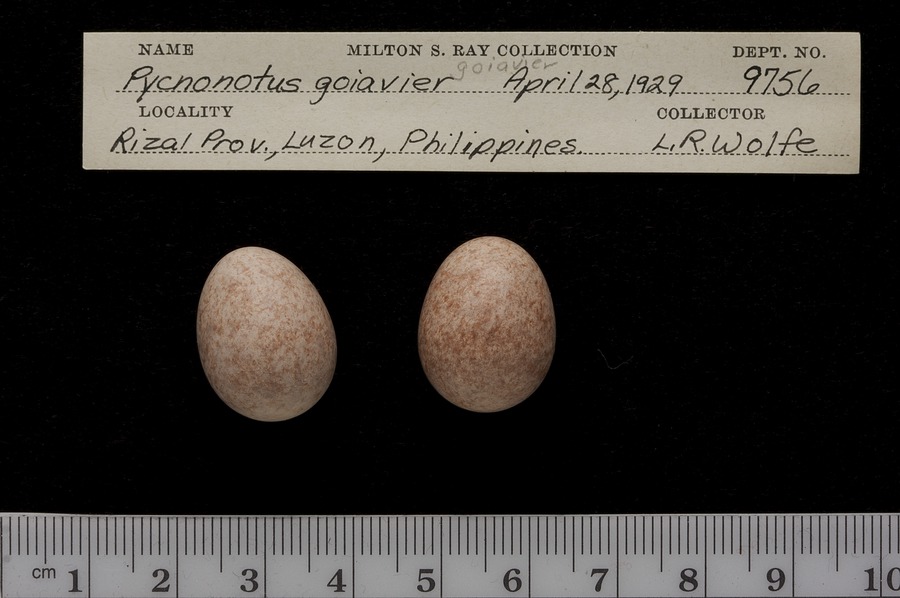 NAME MILTON S. RAY COLLECTION DEPT. NO.
goiavier
Pycnonotus goiavier April 28, 1929 9756
LOCALITY COLLECTOR
Rizal Prov., Luzon, Philippines. L.R. Wolfe
cm 1 2 3 4 5 6 7 8 9 10